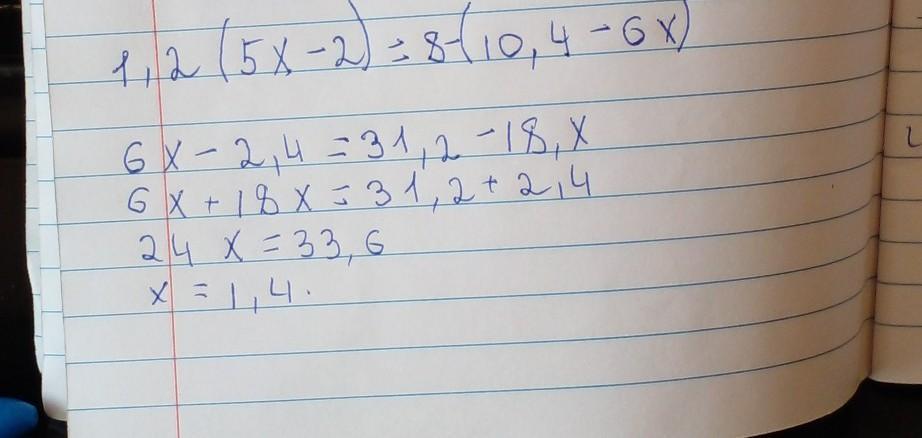 1,2 (5x - 2) = 8-(10,4 - 6x)
6x - 2,4 = 31,2 - 18,x
6x + 18x = 31,2 + 2,4
24 x = 33,6
x = 1,4.